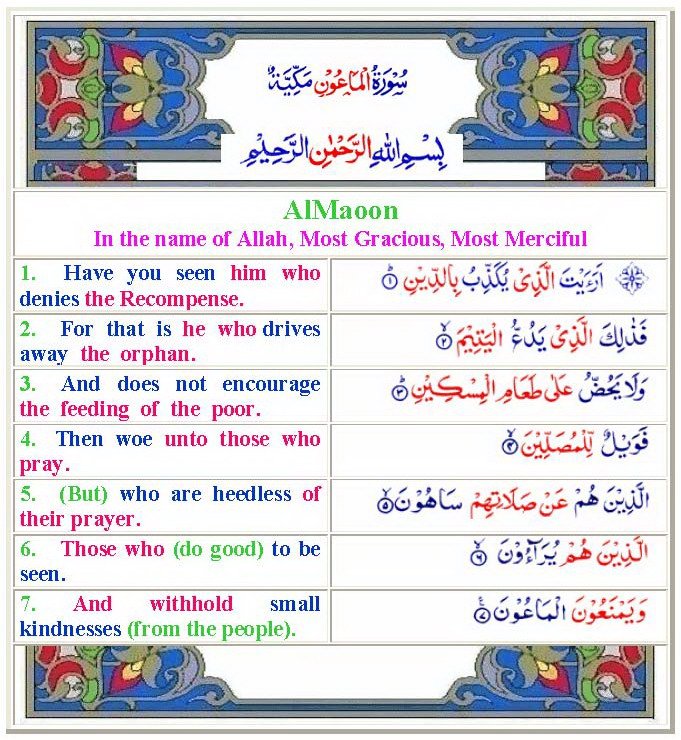 سُوْرَةُ الْمَاعُوْنِ مَكِّيَّةٌ
بِسْمِ اللهِ الرَّحْمٰنِ الرَّحِيْمِ
AlMaoon
In the name of Allah, Most Gracious, Most Merciful
1. Have you seen him who
denies the Recompense.
اَرَءَيْتَ الَّذِىْ يُكَذِّبُ بِالدِّيْنِ ۱
2. For that is he who drives
away the orphan.
فَذٰلِكَ الَّذِىْ يَدُعُّ الْيَتِيْمَ ۲
3. And does not encourage
the feeding of the poor.
وَلَا يَحُضُّ عَلٰى طَعَامِ الْمِسْكِيْنِ ۳
4. Then woe unto those who
pray.
فَوَيْلٌ لِّلْمُصَلِّيْنَ ۴
5. (But) who are heedless of
their prayer.
الَّذِيْنَ هُمْ عَنْ صَلَاتِهِمْ سَاهُوْنَ ۵
6. Those who (do good) to be
seen.
الَّذِيْنَ هُمْ يُرَآءُوْنَ ۶
7. And withhold small
kindnesses (from the people).
وَيَمْنَعُوْنَ الْمَاعُوْنَ ۷